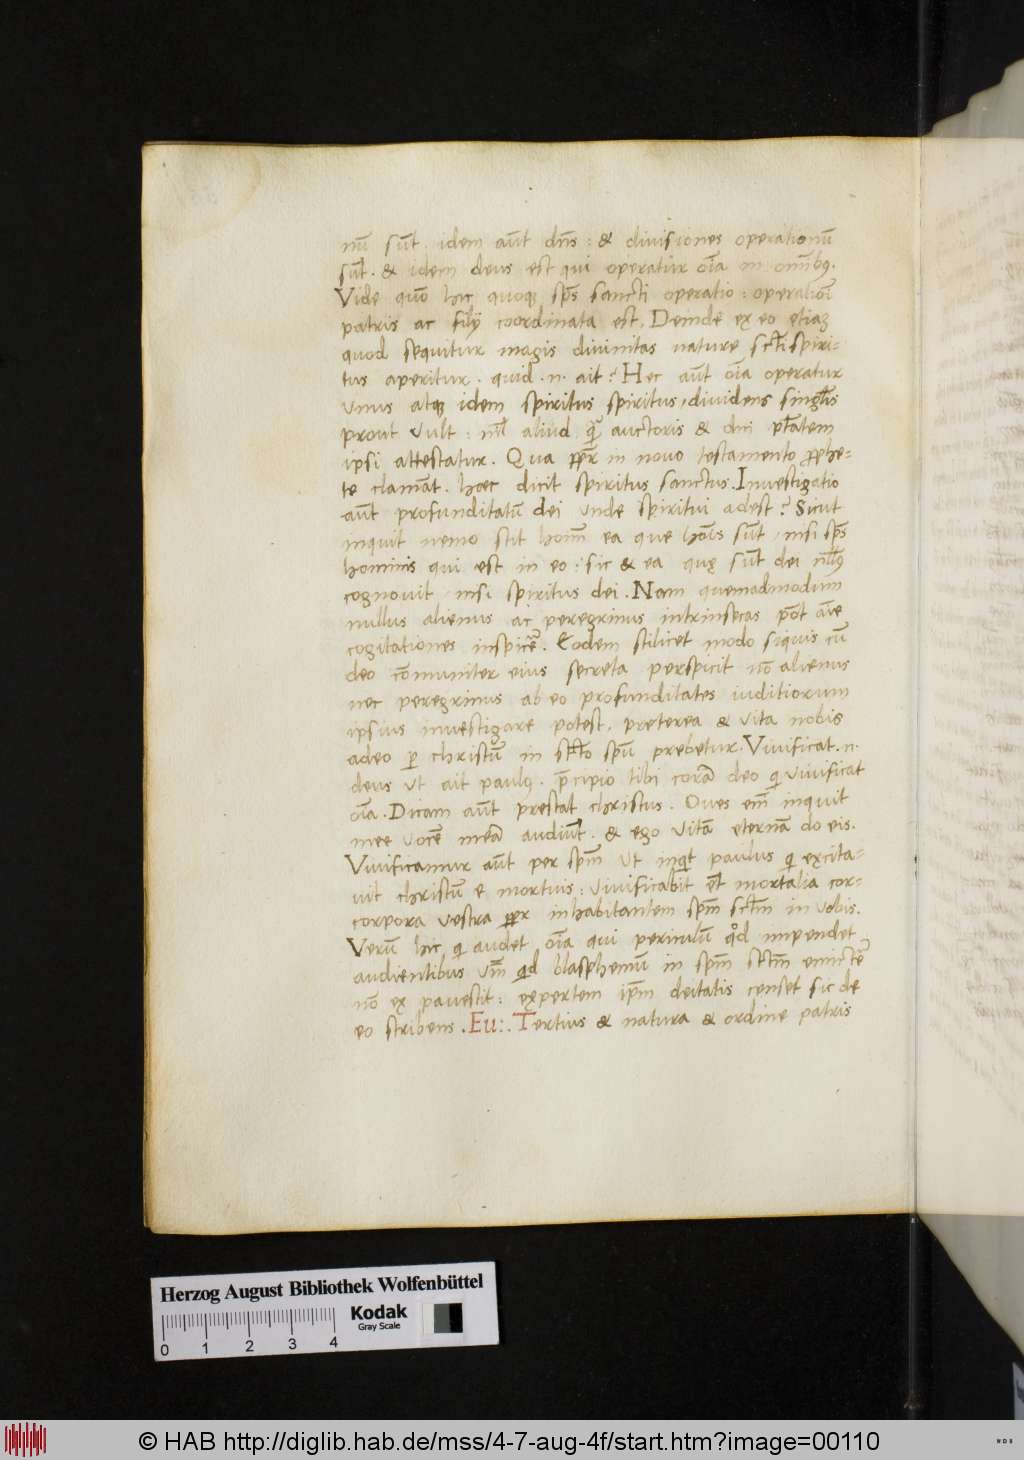 nū sūt. idem aūt dn̄s: & diuisiones operationū
sūt. & idem deus est qui operatur oīa in omībꝫ.
Vide quō hic quoqꝫ sp̄s sancti operatio: operatiōi
patris ac filij coordinata est. Deinde ex eo etiaꝫ
quod sequitur magis diuinitas nature sct̄i spiri-
tus aperitur. quid .n. ait? Hec aūt oīa operatur
vnus atqꝫ idem spiritus spiritus, diuidens singul̄is
prout vult: nīl aliud q̄ȝ auctoris & dni pt̄atem
ipsi attestatur. Qua ꝓpr̄ in nouo testamento ꝓphe-
te clamāt. hæc dicit spiritus sanctus. Inuestigatio
aūt profunditatū dei vnde spiritui adest? Sicut
inquit nemo scit homī̄ ea que hoīs sūt, nisi sp̄s
hominis qui est in eo: sic & ea quę sūt dei nūllꝰ
cognouit, nisi spiritus dei. Nam quemadmodum
nullus alienus ac peregrinus intrinsecas pōt aīe
cogitationes inspicēr. Eodem scilicet modo siquis cū
deo cōmuniter eius secreta perspicit nō alienus
nec peregrinus ab eo profunditates iuditiorum
ipsius inuestigare potest. preterea & vita nobis
adeo ꝑ christū in sct̄o spū prebetur. Viuificat .n.
deus vt ait paulꝰ. p̄cipio tibi corā deo qi viuificat
oīa. Dicam aūt prestat christus. Oues em̄ inquit
mee vocē meā audiūt. & ego vitā eternā do eis.
Viuificamur aūt per spm̄ vt inqt paulus qi excita-
uit christū e mortuis: viuificabit et̄ mortalia cor-
corpora vestra ꝓpr inhabitantem spm̄ sct̄m in vobis.
Verū hic qi audet oīa qui periculū qd impendet
audientibus vm̄ qid blasphemū in spm̄ sct̄m emictēr
nō ex pauescit: expertem ip̄m deitatis censet sic de
eo scribens. Eu:. Tertius & natura & ordine patris
Herzog August Bibliothek Wolfenbüttel
Kodak
Gray Scale
0 1 2 3 4
© HAB http://diglib.hab.de/mss/4-7-aug-4f/start.htm?image=00110